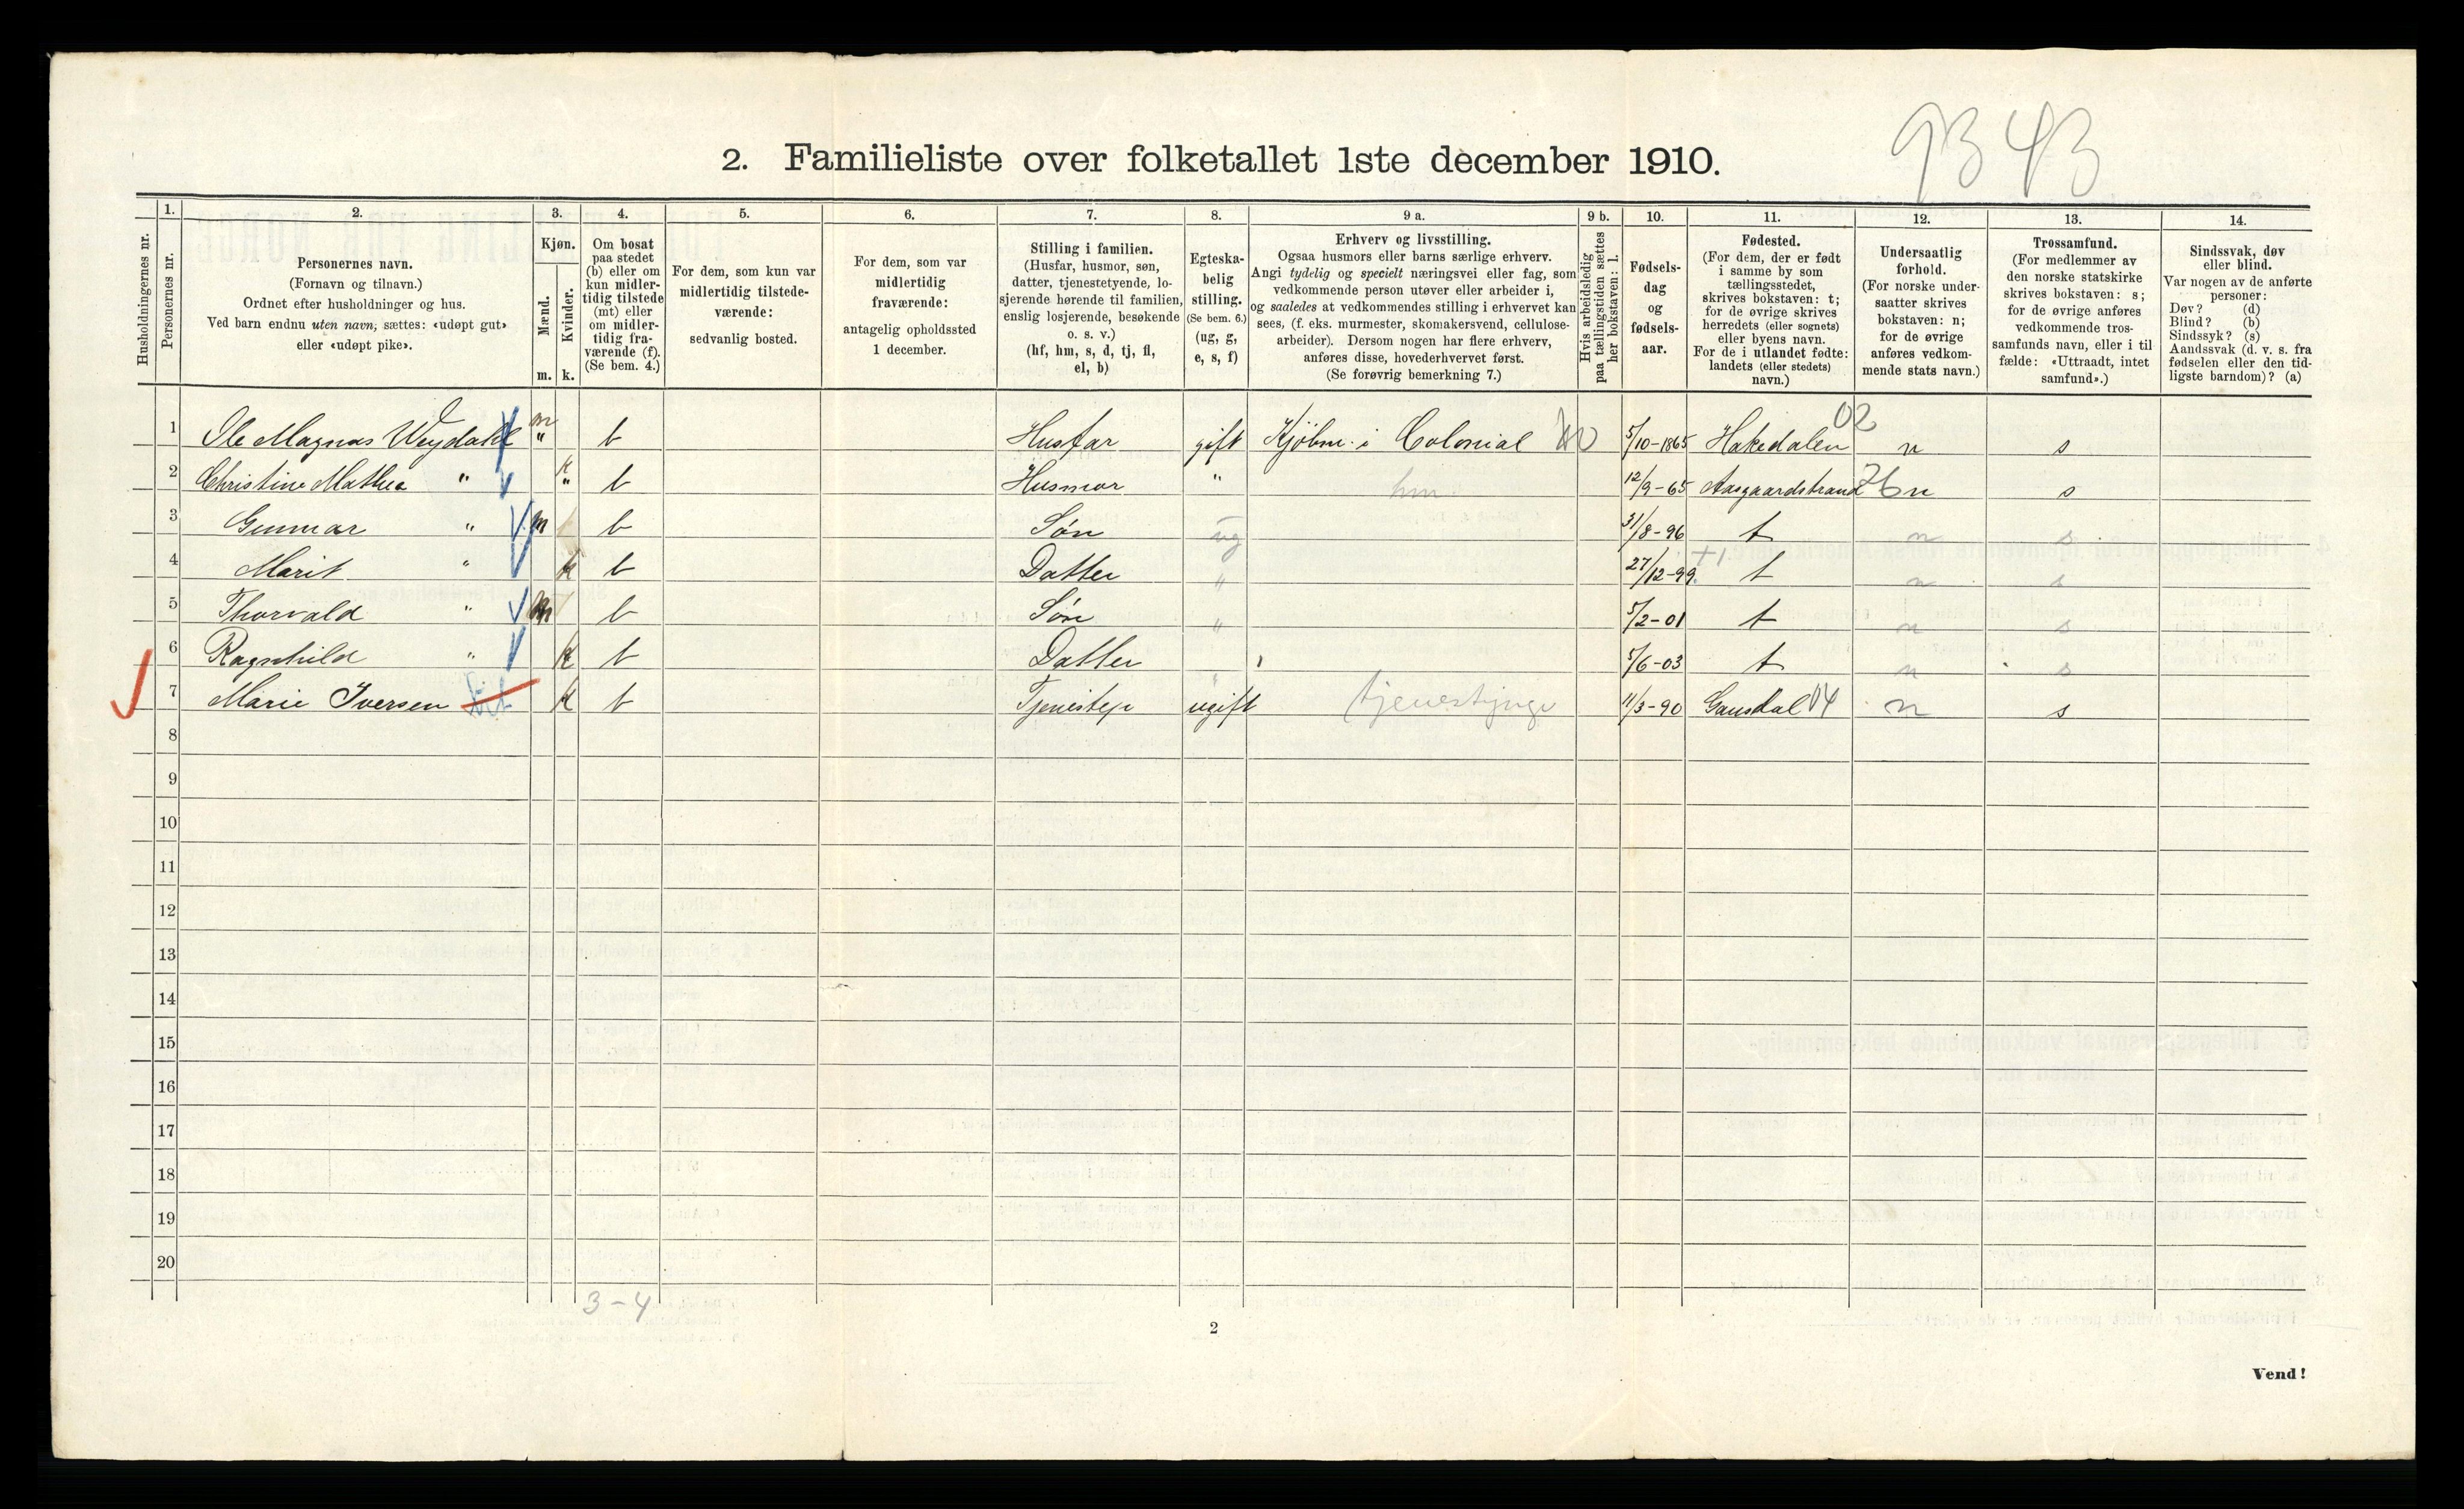 9343
2. Familieliste over folketallet 1ste december 1910.
Husholdningernes nr.
1. Personernes nr.
2. Personernes navn. (Fornavn og tilnavn.) Ordnet efter husholdninger og hus. Ved barn endnu uten navn, sættes: «udøpt gut» eller «udøpt pike».
3. Kjøn. Mænd. m. Kvinder. k.
4. Om bosat paa stedet (b) eller om kun midlertidig tilstede (mt) eller om midlertidig fraværende (f). (Se bem. 4.)
5. For dem, som kun var midlertidig tilstedeværende: sedvanlig bosted.
6. For dem, som var midlertidig fraværende: antagelig opholdssted 1 december.
7. Stilling i familien. (Husfar, husmor, søn, datter, tjenestetyende, losjerende hørende til familien, enslig losjerende, besøkende o. s. v.) (hf, hm, s, d, tj, fl, el, b)
8. Egteskabelig stilling. (Se bem. 6.) (ug, g, e, s, f)
9 a. Erhverv og livsstilling. Ogsaa husmors eller barns særlige erhverv. Angi tydelig og specielt næringsvei eller fag, som vedkommende person utøver eller arbeider i, og saaledes at vedkommendes stilling i erhvervet kan sees, (f. eks. murmester, skomakersvend, cellulosearbeider). Dersom nogen har flere erhverv, anføres disse, hovederhvervet først. (Se forøvrig bemerkning 7.)
9 b. Hvis arbeidsledig paa tællingstiden sættes her bokstaven: l.
10. Fødselsdag og fødselsaar.
11. Fødested. (For dem, der er født i samme by som tællingsstedet, skrives bokstaven: t; for de øvrige skrives herredets (eller sognets) eller byens navn. For de i utlandet fødte: landets (eller stedets) navn.)
12. Undersaatlig forhold. (For norske undersaatter skrives bokstaven: n; for de øvrige anføres vedkommende stats navn.)
13. Trossamfund. (For medlemmer av den norske statskirke skrives bokstaven: s; for de øvrige anføres vedkommende trossamfunds navn, eller i tilfælde: «Uttraadt, intet samfund».)
14. Sindssvak, døv eller blind. Var nogen av de anførte personer: Døv? (d) Blind? (b) Sindssyk? (s) Aandssvak (d. v. s. fra fødselen eller den tidligste barndom)? (a)
1 Ole Magnus Weydahl m " b Husfar gift Kjöbm. i Colonial 5/10-1865 Hakedalen 02 n s
2 Christine Mathea " k " b Husmor " hm 12/9-65 Aasgaardstrand n s
3 Gunnar " m b Søn ug 31/8-96 t n s
4 Marit " k b Datter " 27/12-99 t n s
5 Thorvald " m b Søn " 5/2-01 t n s
6 Ragnhild " k b Datter " 5/6-03 t n s
7 Marie Iversen k b Tjenestep ugift tjenestpige 11/3-90 Gausdal 04 n s
8
9
10
11
12
13
14
15
16
17
18
19
20
3-4
2
Vend!